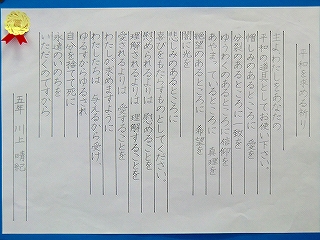 平和を求める祈り
主よ わたしをあなたの
平和の道具としてお使い下さい。
憎しみのあるところに 愛を
分裂のあるところに 一致を
ゆうわくのあるところに 信仰を
あやまっているところに 真理を
絶望のあるところに 希望を
闇に光を
悲しみのあるところに
喜びをもたらすものとしてください。
慰められるよりは 慰めることを
理解されるよりは 理解することを
愛されるよりは 愛することを
わたしが求めますように
わたしたちは 与えるから受け
ゆるすからゆるされ
自分を捨てて死に
永遠のいのちを
いただくのですから
五年 川上 晴紀